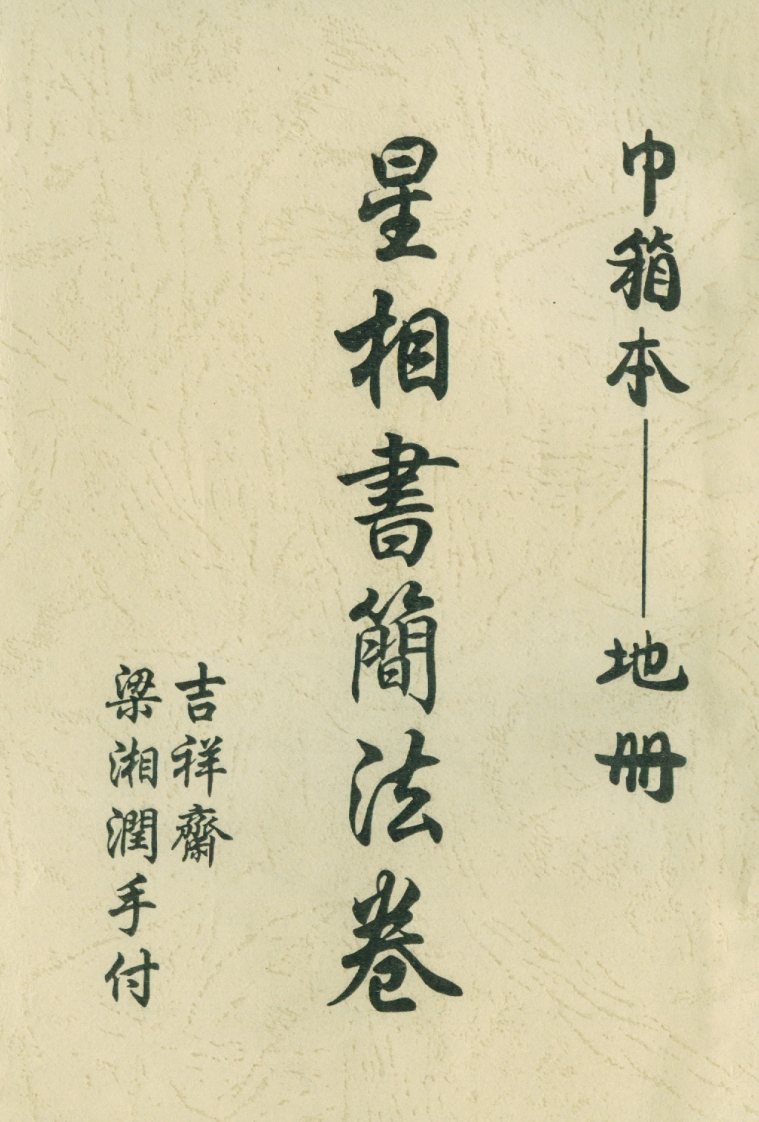 巾箱本——地册
星相書簡法卷
吉祥齋
梁湘潤手付